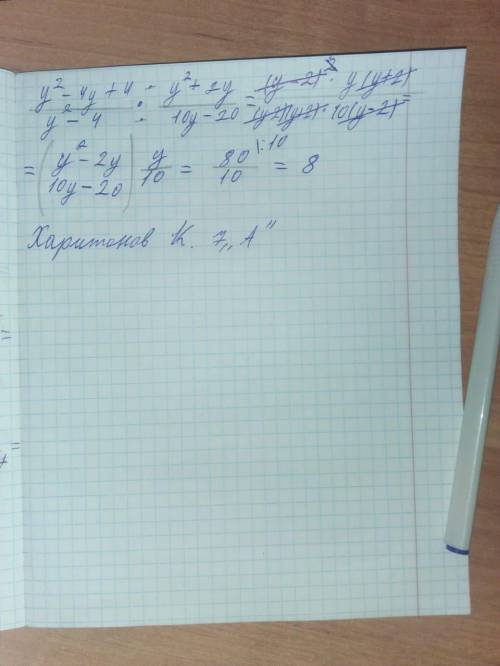 y² - 4y + 4 / y² - 4 : y² + 2y / 10y - 20 = (y - 2)² · y(y+2) / (y-2)(y+2) · 10(y-2) =
= (y² - 2y / 10y - 20) y / 10 = 80 / 10 |:10 = 8
Харитонов К. 7 „А"